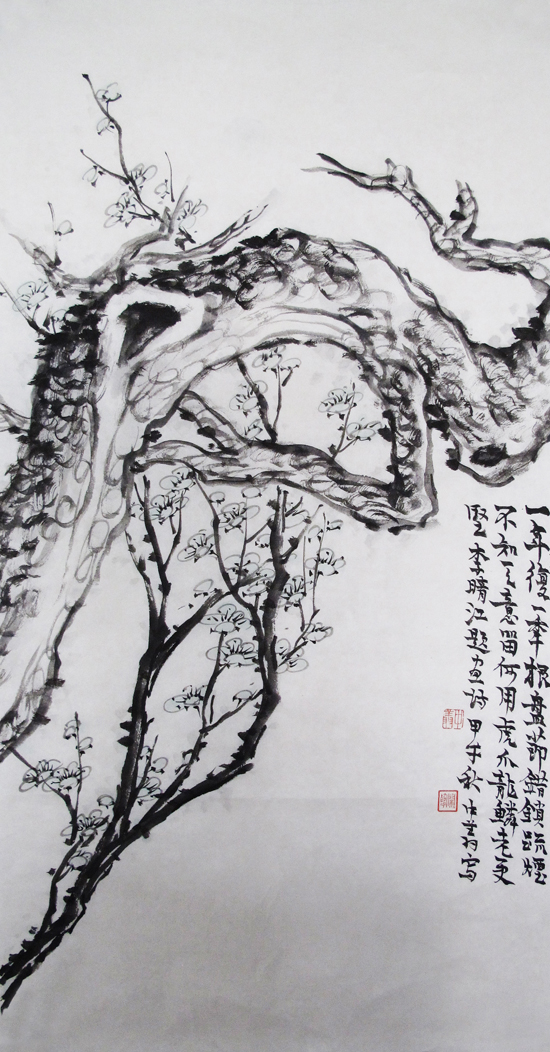 一年復一秊根盤節錯鎖疏煙
不知天意留何用虎爪龍鱗老更
堅李晴江題畫詩甲午秋寫